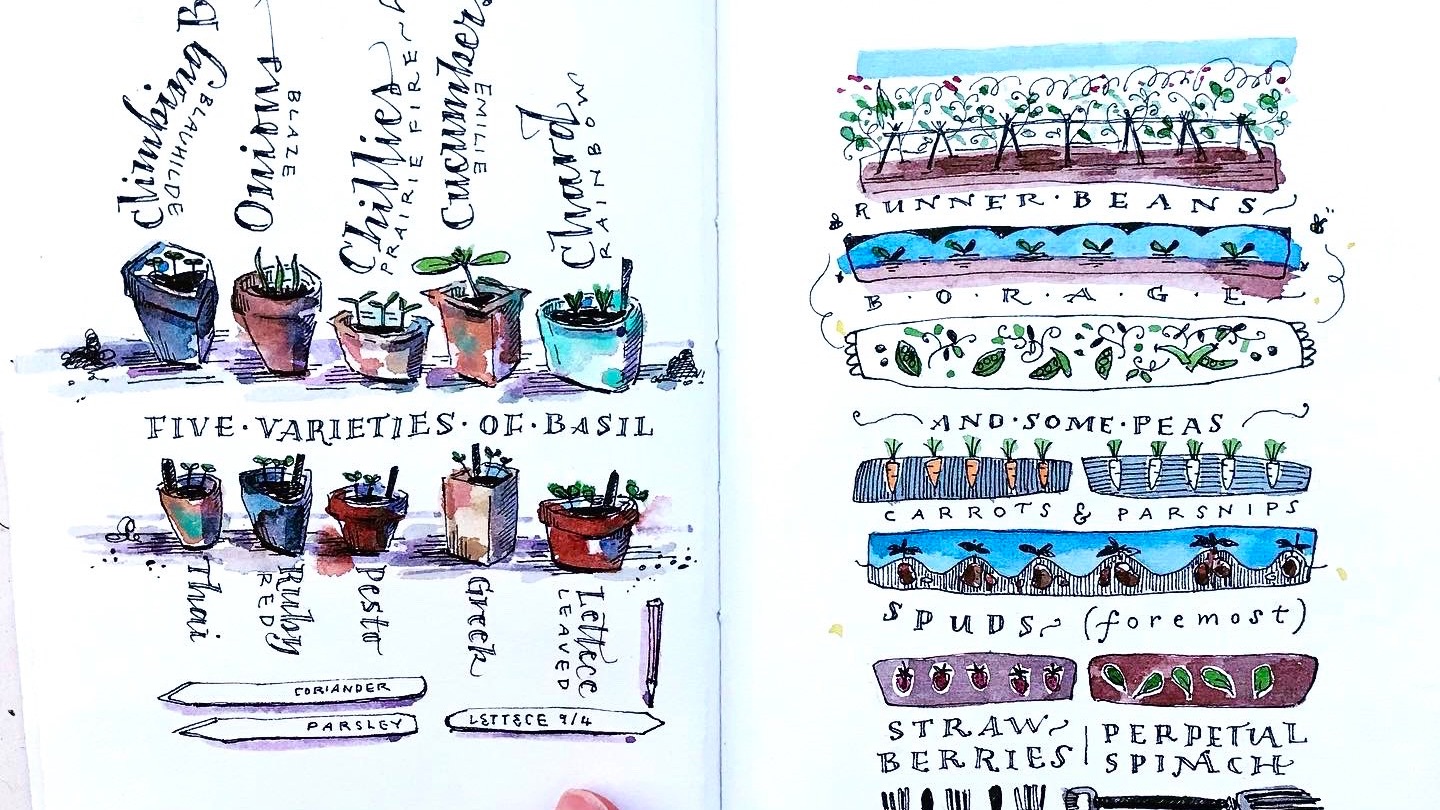 Climbing B
BLAUHILDE
Onions
BLAZE
Chillies
PRAIRIE FIRE
Cucumber
EMILIE
Chard
RAINBOW
FIVE·VARIETIES·OF·BASIL
Thai
Ruby
RED
Pesto
Greek
Lettece
LEAVED
CORIANDER
PARSLEY
LETTECE 9/4
RUNNER·BEANS
B·O·R·A·G·E
AND·SOME·PEAS
CARROTS & PARSNIPS
SPUDS (foremost)
STRAW
BERRIES
PERPETUAL
SPINACH